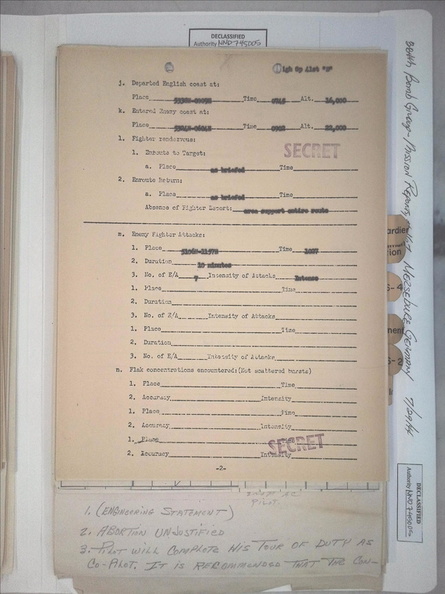 DECLASSIFIED
Authority NND 745005
High Sq Alst "D"
j. Departed English coast at:
Place Time 0845 Alt. 16,000
k. Entered Enemy coast at:
Place Time Alt. 22,000
l. Fighter rendezvous:
SECRET
1. Enroute to Target:
a. Place as briefed Time
2. Enroute Return:
a. Place as briefed Time
Absence of Fighter Escort: area support entire route
m. Enemy Fighter Attacks:
1. Place Time
2. Duration 10 minutes
3. No. of E/A Intensity of Attacks Intense
1. Place Time
2. Duration
3. No. of E/A Intensity of Attacks
1. Place Time
2. Duration
3. No. of E/A Intensity of Attacks
n. Flak concentrations encountered:(Not scattered bursts)
1. Place Time
2. Accuracy Intensity
1. Place Time
2. Accuracy Intensity
1. Place
SECRET
2. Accuracy Intensity
-2-
Pilot.
1. (ENGINEERING STATEMENT)
2. ABORTION UNJUSTIFIED
3. PILOT WILL COMPLETE HIS TOUR OF DUTY AS
CO-PILOT. IT IS RECOMMENDED THAT THE CON-
Bomb Group - Mission Reports MERSEBURG GERMANY 7/29/44
DECLASSIFIED
Authority NND 745005